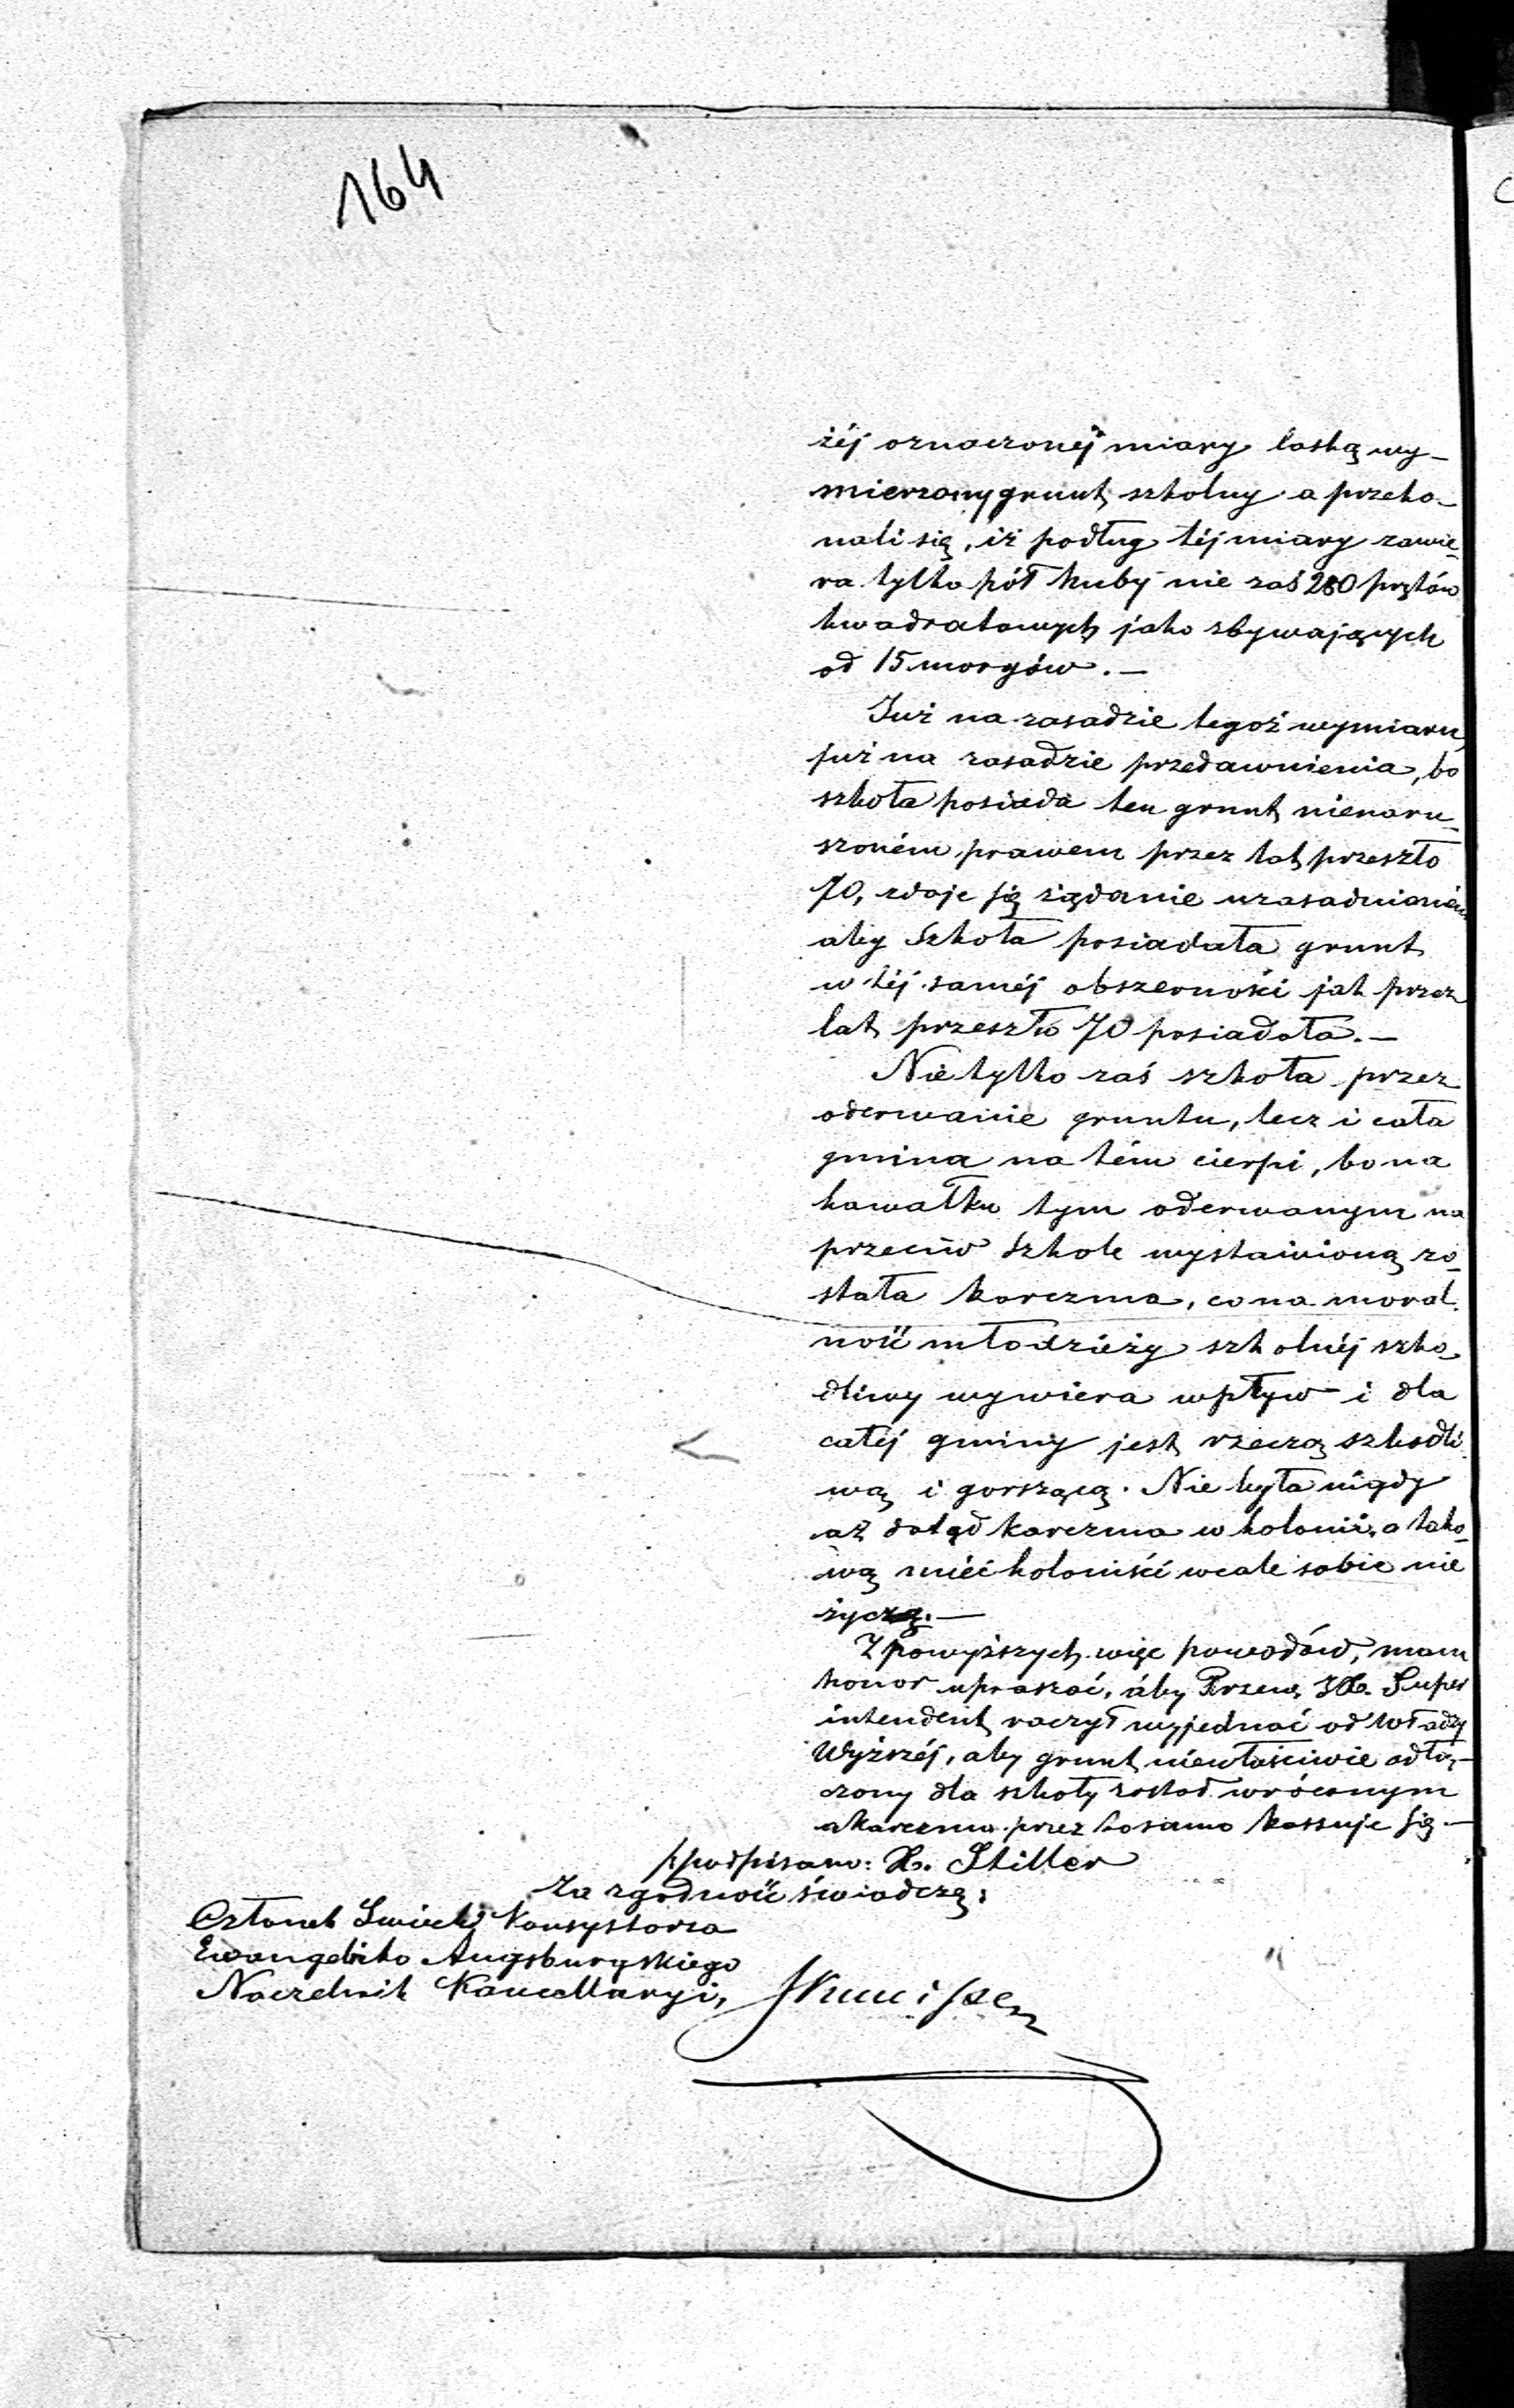 164
żéj oznaczonéj miary laską wy-
mierzony grunt szkolny a przeko-
nali się, iż podług téj miary zawie-
ra tylko pół huby nie zaś 280 prętów
kwadratowych jako zbywających
od 15 morgów. —
Już na zasadzie tegoż wymiaru,
już na zasadzie przedawnienia, bo
szkoła posiada ten grunt nienaru-
szoném prawem przez lat przeszło
70, zdaje się żądanie uzasadnioném
aby Szkoła posiadała grunt
w téj saméj obszerności jak przez
lat przeszło 70 posiadała. —
Nie tylko zaś szkoła przez
oderwanie gruntu, lecz i cała
gmina na tém cierpi, bo na
kawałku tym oderwanym na
przeciw Szkole wystawioną zo-
stała karczma, co na moral-
ność młodzieży szkolnéj szko-
dliwy wywiera wpływ i dla
całéj gminy jest rzeczą szkodli-
wą i gorszącą. Nie była nigdy
aż dotąd karczma w kolonii, a tako-
wą mieć koloniści wcale sobie nie
życzą. —
Z powyższych więc powodów, mam
honor upraszać, aby Przew. JX. Super
intendent raczył wyjednać od Władzy
Wyższéj, aby grunt niewłaściwie odłą-
czony dla szkoły został wróconym
a karczma przez to samo kassuje się. —
/podpisano: X. Stiller
Za zgodność świadczę:
Członek Świecki Konsystorza
Ewangelicko Augsburgskiego
Naczelnik Kancellaryi,